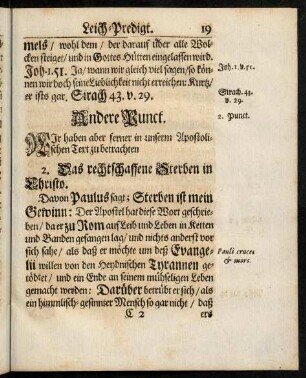 Leich-Predigt. 19
mels / wohl dem / der darauf über alle Wol-
cken steiget / und in Gottes Hütten eingelassen wird.
Joh. 1. 51. Ja / wann wir gleich viel sagen / so kön-
nen wir doch seine Lieblichkeit nicht erreichen: Kurtz /
er ists gar, Sirach 43. v. 29.
Joh. 1. v. 51.
Sirach. 43.
v. 29.
Andere Punct.
2. Punct.
Wir haben aber ferner in unserm Apostoli-
schen Text zu betrachten
2. Das rechtschaffene Sterben in
Christo.
Davon Paulus sagt; Sterben ist mein
Gewinn: Der Apostel hat diese Wort geschrie-
ben / da er zu Rom auf Leib und Leben in Ketten
und Banden gefangen lag / und nichts anderst vor
sich sahe / als daß er möchte um deß Evange-
lii willen von den Heydnischen Tyrannen ge-
tödtet / und ein Ende an seinem mühseligen Leben
gemacht werden: Darüber betrübt er sich / als
ein himmlisch-gesinnter Mensch so gar nicht / daß
Pauli cruces
& mors.
C 2 ers